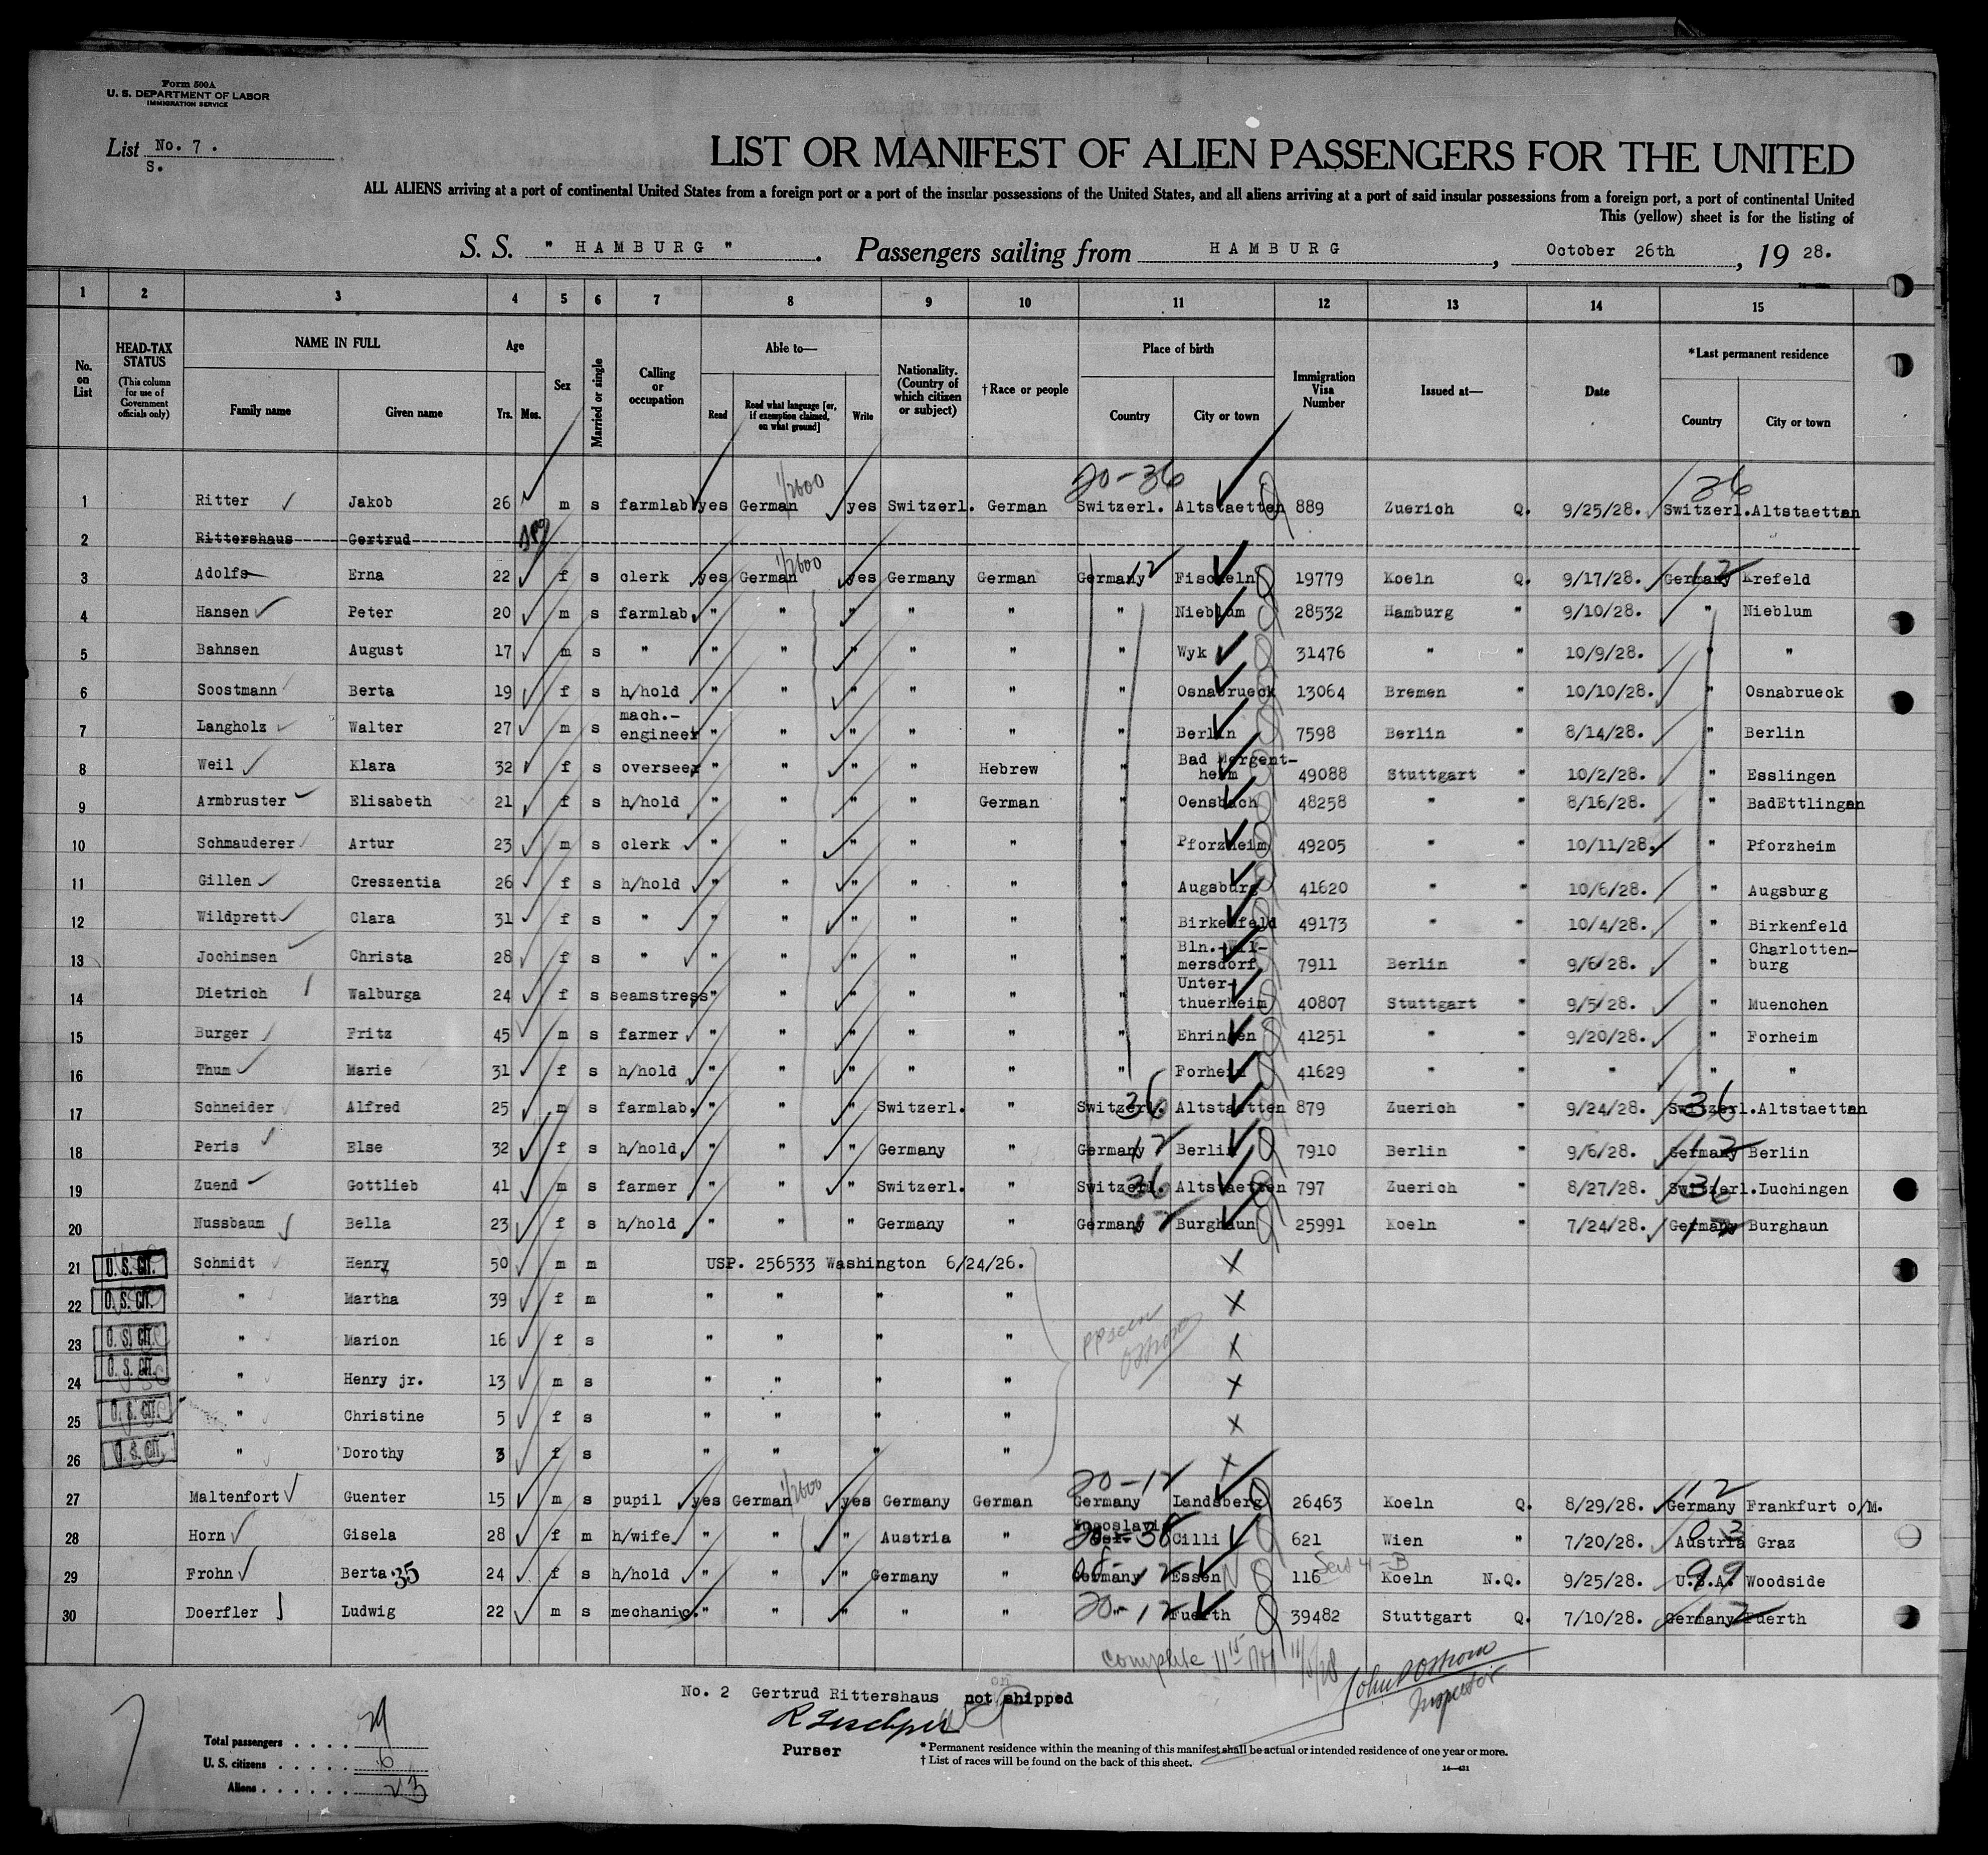 Form 500A
U. S. DEPARTMENT OF LABOR
IMMIGRATION SERVICE
List No. 7 .
S.
LIST OR MANIFEST OF ALIEN PASSENGERS FOR THE UNITED
ALL ALIENS arriving at a port of continental United States from a foreign port or a port of the insular possessions of the United States, and all aliens arriving at a port of said insular possessions from a foreign port, a port of continental United
This (yellow) sheet is for the listing of
S. S. " HAMBURG " . Passengers sailing from HAMBURG , October 26th , 19 28.
1 2 3 4 5 6 7 8 9 10 11 12 13 14 15
No. on List
HEAD-TAX STATUS
(This column for use of Government officials only)
NAME IN FULL
Family name Given name
Age
Yrs. Mos.
Sex
Married or single
Calling or occupation
Able to—
Read
Read what language [or, if exemption claimed, on what ground]
Write
Nationality. (Country of which citizen or subject)
†Race or people
Place of birth
Country City or town
Immigration Visa Number
Issued at—
Date
*Last permanent residence
Country City or town
20-36 36
1 Ritter Jakob 26 m s farmlab yes German 1/2600 yes Switzerl. German Switzerl. Altstaetten 889 Zuerich Q. 9/25/28. Switzerl. Altstaetten
2 Rittershaus Gertrud
3 Adolfs Erna 22 f s clerk yes German 1/2600 yes Germany German Germany 12 Fischeln 19779 Koeln Q. 9/17/28. Germany 12 Krefeld
4 Hansen Peter 20 m s farmlab. " " " " " " Nieblum 28532 Hamburg " 9/10/28. " Nieblum
5 Bahnsen August 17 m s " " " " " " " Wyk 31476 " " 10/9/28. " "
6 Soostmann Berta 19 f s h/hold " " " " " " Osnabrueck 13064 Bremen " 10/10/28. " Osnabrueck
7 Langholz Walter 27 m s mach.-engineer " " " " " " Berlin 7598 Berlin " 8/14/28. " Berlin
8 Weil Klara 32 f s overseer " " " " Hebrew " Bad Mergent-heim 49088 Stuttgart " 10/2/28. " Esslingen
9 Armbruster Elisabeth 21 f s h/hold " " " " German " Oensbach 48258 " " 8/16/28. " BadEttlingen
10 Schmauderer Artur 23 m s clerk " " " " " " Pforzheim 49205 " " 10/11/28. " Pforzheim
11 Gillen Creszentia 26 f s h/hold " " " " " " Augsburg 41620 " " 10/6/28. " Augsburg
12 Wildprett Clara 31 f s " " " " " " " Birkenfeld 49173 " " 10/4/28. " Birkenfeld
13 Jochimsen Christa 28 f s " " " " " " " Bln.-Wil-mersdorf 7911 Berlin " 9/6/28. " Charlotten-burg
14 Dietrich Walburga 24 f s seamstress " " " " " " Unter-thuerheim 40807 Stuttgart " 9/5/28. " Muenchen
15 Burger Fritz 45 m s farmer " " " " " " Ehringen 41251 " " 9/20/28. " Forheim
16 Thum Marie 31 f s h/hold " " " " " " Forheim 41629 " " " " "
17 Schneider Alfred 25 m s farmlab. " " " Switzerl. " Switzerl. 36 Altstaetten 879 Zuerich " 9/24/28. Switzerl. 36 Altstaetten
18 Peris Else 32 f s h/hold " " " Germany " Germany 12 Berlin 7910 Berlin " 9/6/28. Germany 12 Berlin
19 Zuend Gottlieb 41 m s farmer " " " Switzerl. " Switzerl. 36 Altstaetten 797 Zuerich " 8/27/28. Switzerl. 36 Luchingen
20 Nussbaum Bella 23 f s h/hold " " " Germany " Germany 12 Burghaun 25991 Koeln " 7/24/28. Germany 12 Burghaun
21 U. S. CIT. Schmidt Henry 50 m m USP. 256533 Washington 6/24/26. X
22 U. S. CIT. " Martha 39 f m " " " " X
23 U. S. CIT. " Marion 16 f s " " " " X
24 U. S. CIT. " Henry jr. 13 m s " " " " X
25 U. S. CIT. " Christine 5 f s " " " " X
26 U. S. CIT. " Dorothy 3 f s " " " " X
PP seen
Osborn
20-12 12
27 Maltenfort Guenter 15 m s pupil yes German 1/2600 yes Germany German Germany Landsberg 26463 Koeln Q. 8/29/28. Germany Frankfurt o/M.
28 Horn Gisela 28 f m h/wife " " " Austria " Yugoslavia 38 Cilli 621 Wien " 7/20/28. Austria 03 Graz
29 Frohn Berta 35 24 f s h/hold " " " Germany " Germany 12 Essen 116 Sec 4-B Koeln N.Q. 9/25/28. U.S.A. 99 Woodside
30 Doerfler Ludwig 22 m s mechanic. " " " " " " 20-12 Fuerth 39482 Stuttgart Q. 7/10/28. Germany 12 Fuerth
complete 11 15 AM
John Osborn
Inspector
No. 2 Gertrud Rittershaus not shipped
on
Purser
Total passengers . . . . 29
U. S. citizens . . . . . 6
Aliens . . . . . . 23
* Permanent residence within the meaning of this manifest shall be actual or intended residence of one year or more.
† List of races will be found on the back of this sheet.
14—431